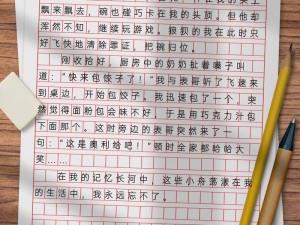 飘来飘去，碗也碰巧卡在我的头顶。但他却
浑然不知，继续玩游戏。狼狈的我在此时只
好飞快地清除罪证，把碗归位。
刚收拾好，厨房中的奶奶扯着嗓子叫
道：“快来包饺子了！”我与表哥听了飞速来
到桌边，开始包饺子。我迅速包了一个，突
然觉得面粉包会味不好，于是用巧克力充包
下面那个。这时旁边的表哥突然来了一
句：“这是奥利给吧！”顿时全家都哈哈大
笑……
在我的记忆长河中，这些小舟荡漾在我
的生活中，我永远忘不了。